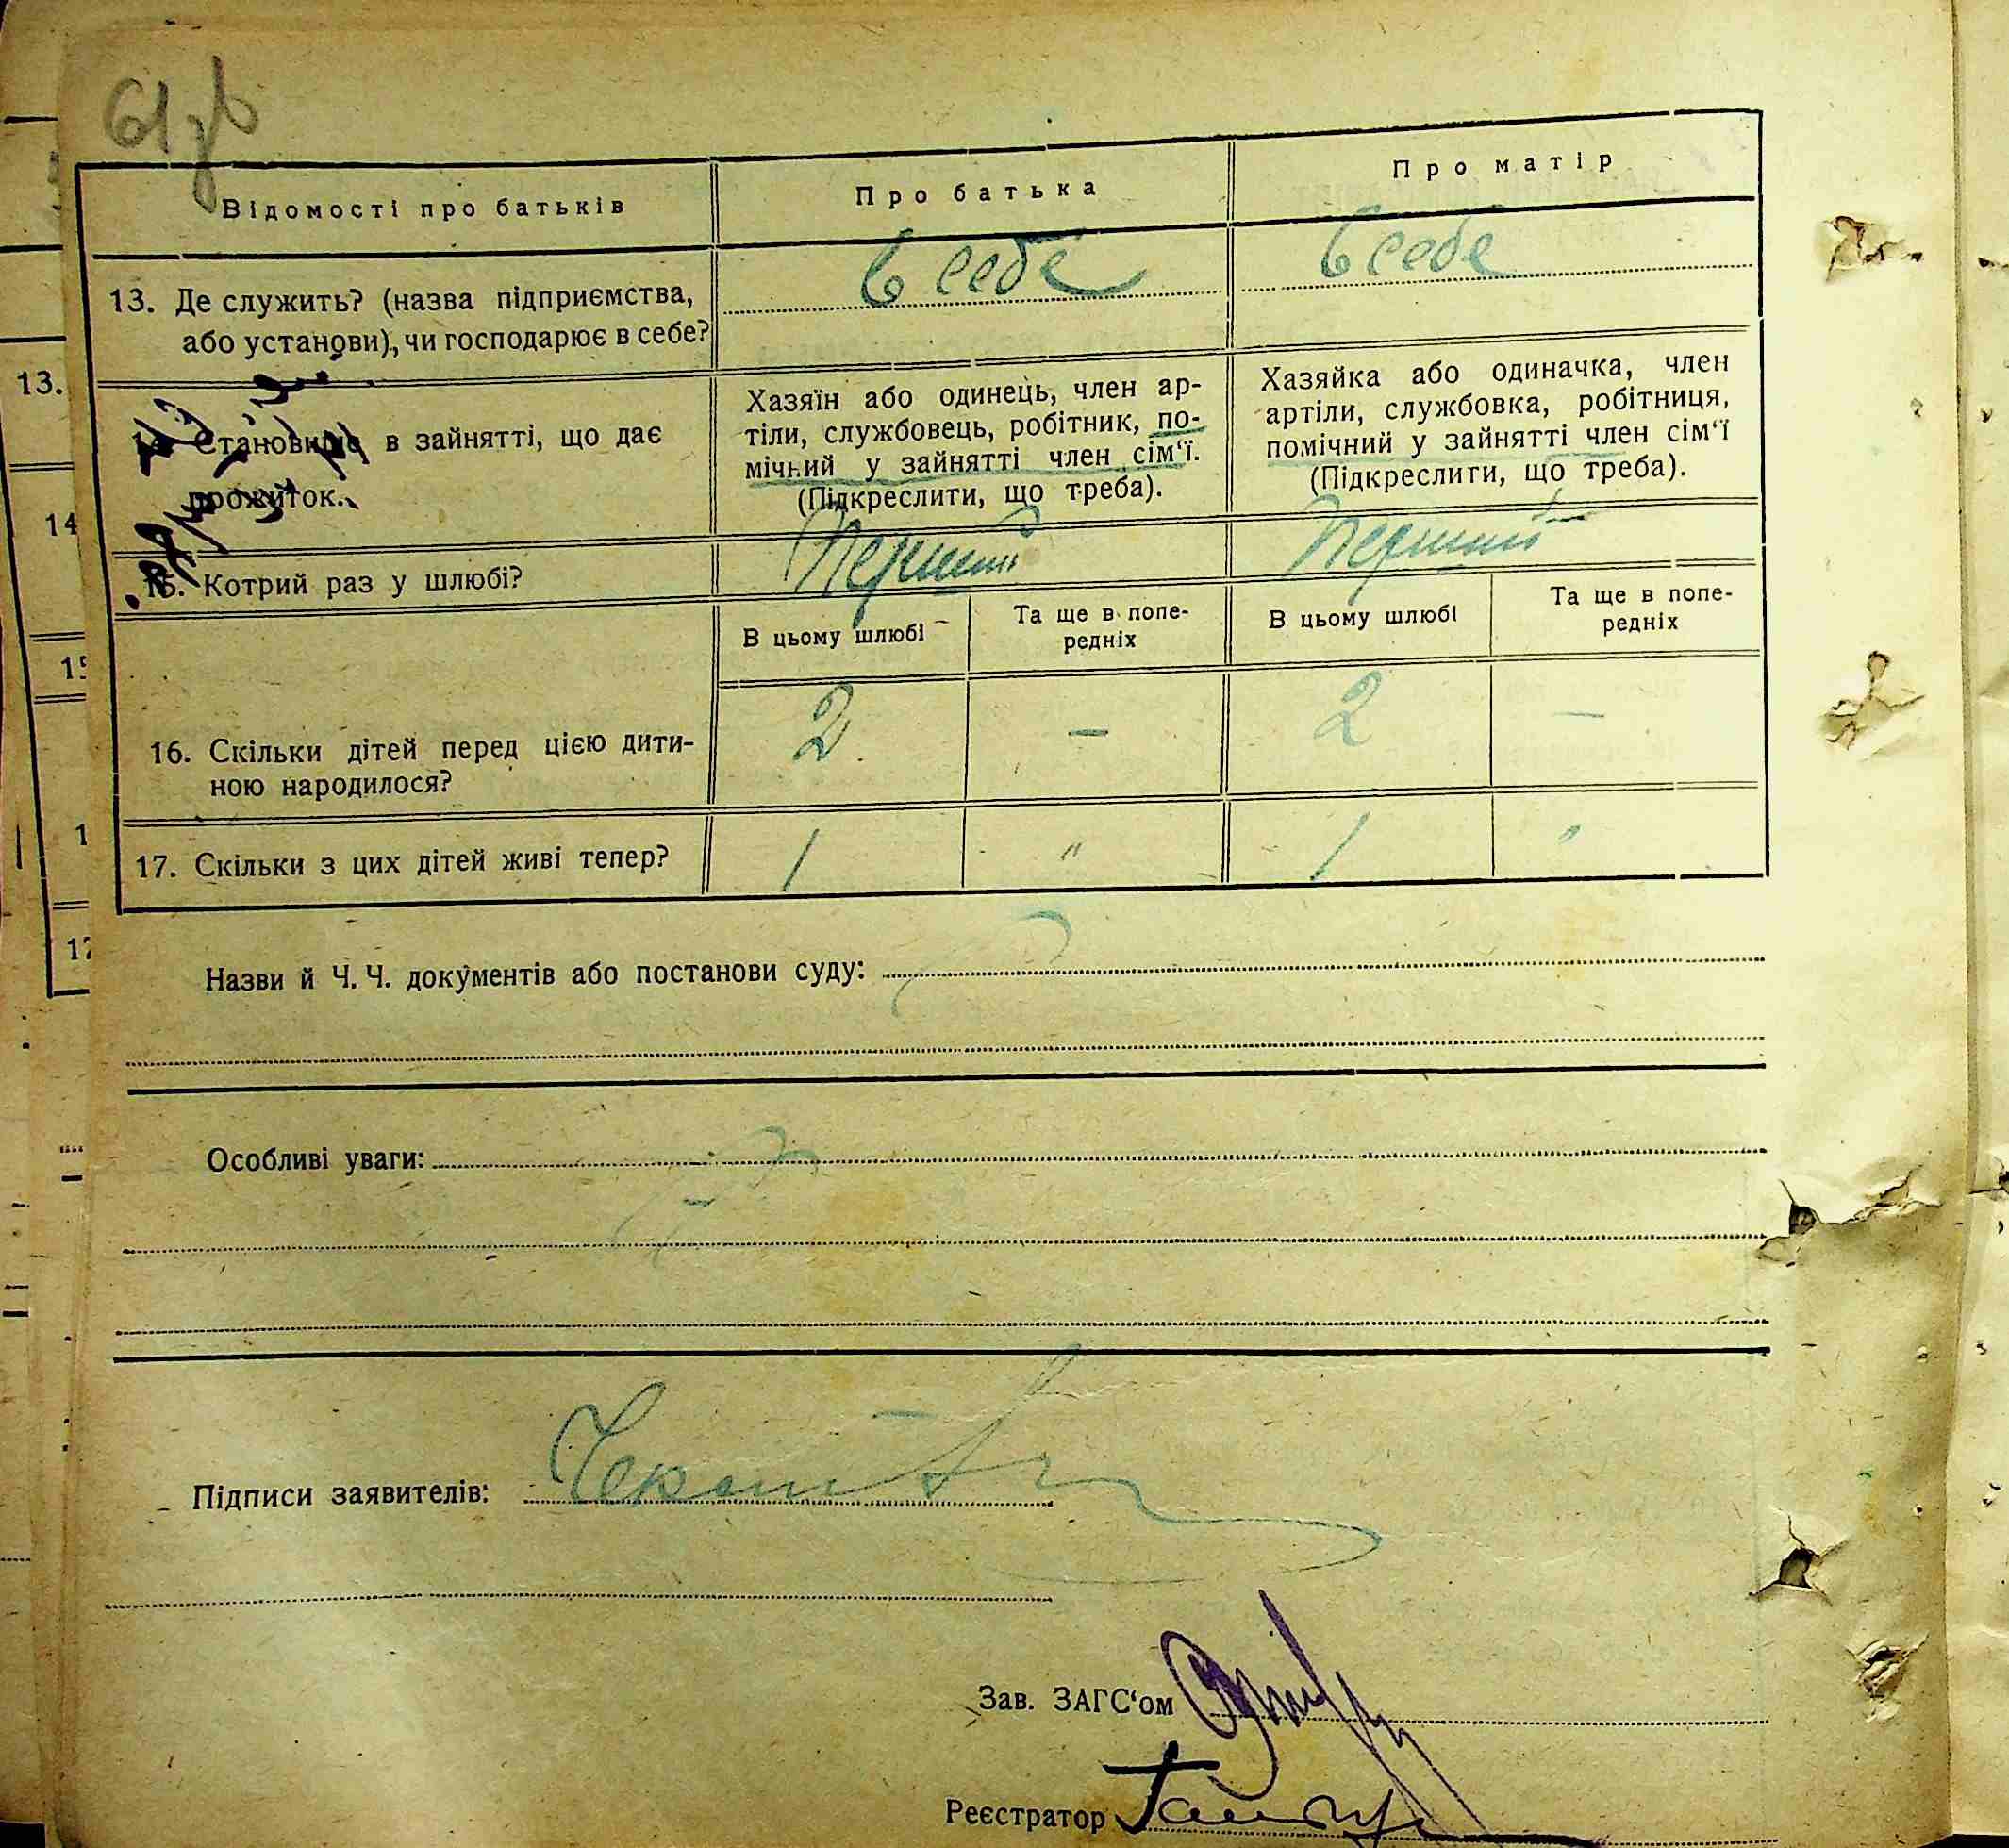 61зв
Відомості про батьків
Про батька
Про матір
13. Де служить? (назва підприємства,
або установи), чи господарює в себе?
в себе
в себе
14. Становище в зайнятті, що дає
прожиток.
Хазяїн або одинець, член ар-
тіли, службовець, робітник, по-
мічний у зайнятті член сім‘ї.
(Підкреслити, що треба).
Хазяйка або одиначка, член
артіли, службовка, робітниця,
помічний у зайнятті член сім‘ї
(Підкреслити, що треба).
15. Котрий раз у шлюбі?
Перший
Перший
В цьому шлюбі
Та ще в попе-
редніх
В цьому шлюбі
Та ще в попе-
редніх
16. Скільки дітей перед цією дити-
ною народилося?
2 — 2 —
17. Скільки з цих дітей живі тепер?
1 " 1 "
Назви й Ч. Ч. документів або постанови суду:
Особливі уваги:
Підписи заявителів:
Зав. ЗАГС‘ом
Реєстратор
13.
14
15
1
17